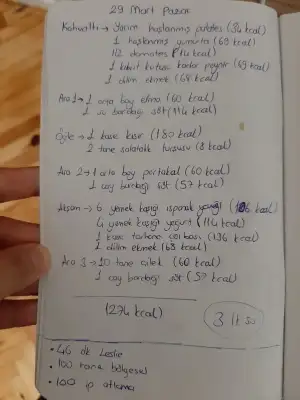 29 Mart Pazar
Kahvaltı → Yarım haşlanmış patates (94 kcal)
1 haşlanmış yumurta (68 kcal)
1/2 domates (14 kcal)
1 kibrit kutusu kadar peynir (69 kcal)
1 dilim ekmek (68 kcal)
Ara 1 → 1 orta boy elma (60 kcal)
1 su bardağı süt (114 kcal)
Öğle → 1 kase kısır (180 kcal)
2 tane salatalık turşusu (8 kcal)
Ara 2 → 1 orta boy portakal (60 kcal)
1 çay bardağı süt (57 kcal)
Akşam → 6 yemek kaşığı ıspanak yemeği (106 kcal)
4 yemek kaşığı yoğurt (114 kcal)
1 kase tarhana çorbası (136 kcal)
1 dilim ekmek (68 kcal)
Ara 3 → 10 tane çilek (60 kcal)
1 çay bardağı süt (57 kcal)
(1274 kcal)
3 lt su
• 46 dk Leslie
• 100 tane bölgesel
• 100 ip atlama